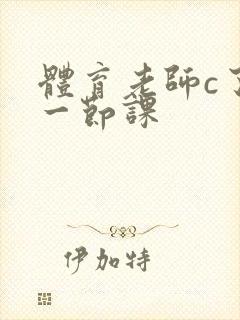 體育老師c了
一節課
伊加特